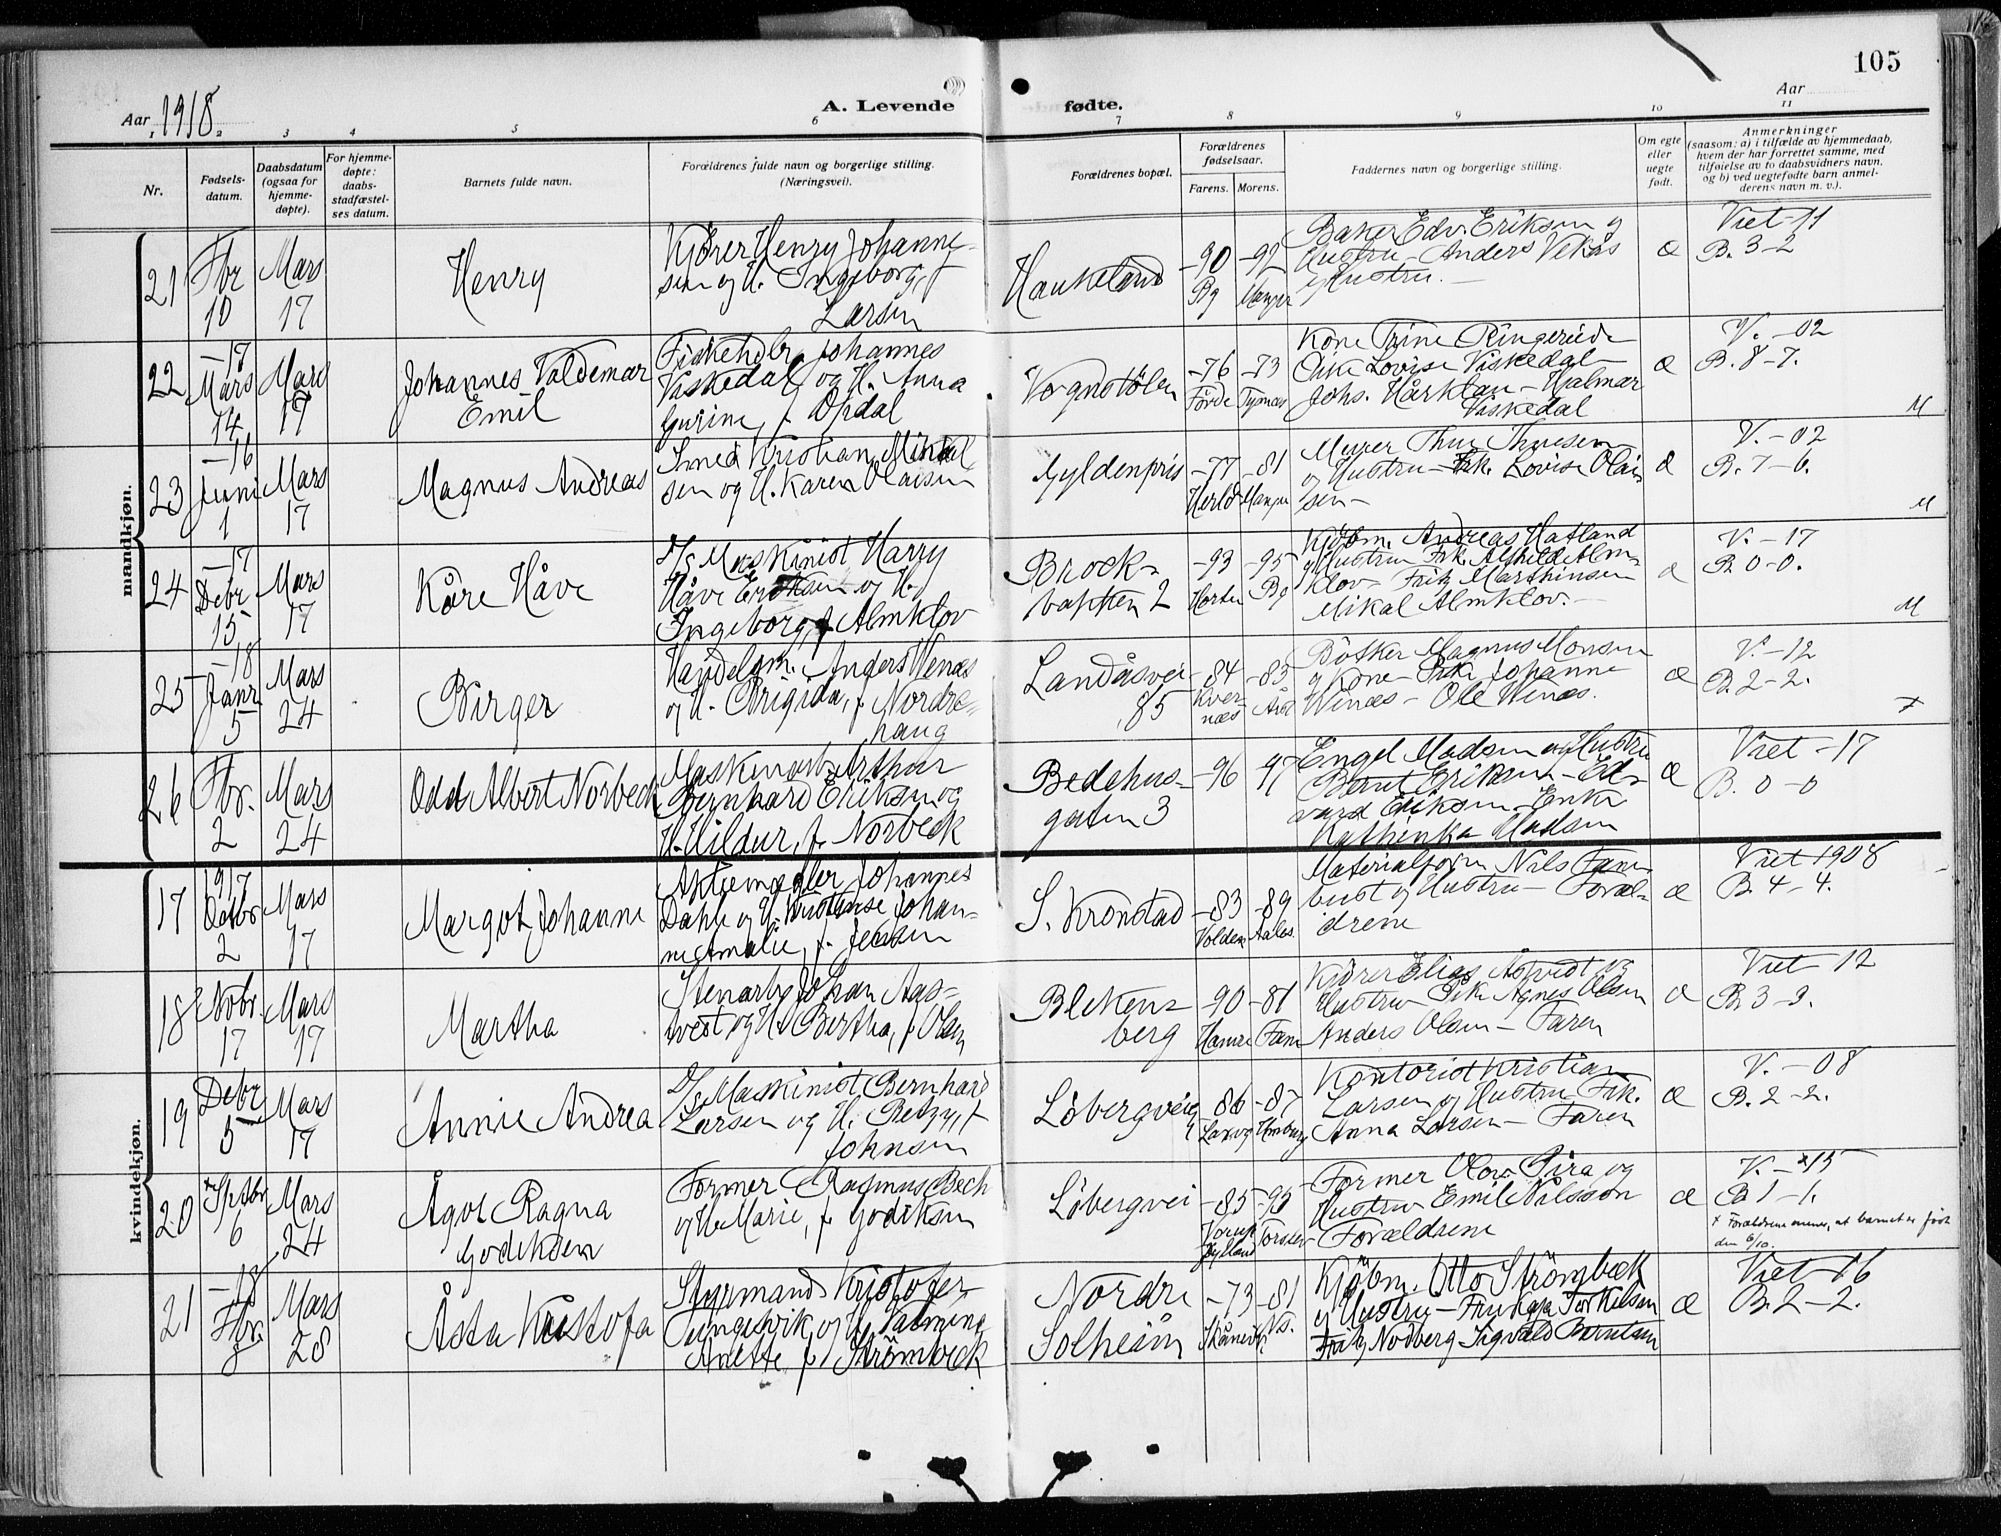 105
Aar 1918
A. Levende fødte.
Aar
1 2 3 4 5 6 7 8 9 10 11
Nr.
Fødsels-
datum.
Daabsdatum
(ogsaa for
hjemme-
døpte).
For hjemme-
døpte:
daabs-
stadfæstel-
ses datum.
Barnets fulde navn.
Forældrenes fulde navn og borgerlige stilling.
(Næringsvei).
Forældrenes bopæl.
Forældrenes
fødselsaar.
Farens. Morens.
Faddernes navn og borgerlige stilling.
Om egte
eller
uegte
født.
Anmerkninger
(saasom: a) i tilfælde av hjemmedaab,
hvem der har forrettet samme, med
tilføielse av to daabsvidners navn,
og b) ved uegtefødte barn anmel-
derens navn m. v.).
mandkjøn.
21
Fbr
10
Mars
17
Henry
Kjører Henry Johanne-
sen og H. Ingeborg, f
Larsen
Haukeland
-90
Bg
-92
Manger
Baker Edv. Eriksen og
Hustru - Anders Vekås
og Hustru. -
æ
Viet -11
B. 3-2
22
-17
Mars
14
Mars
17
Johannes Valdemar
Emil
Fiskehdlr. Johannes
Viskedal og H. Anna
Gurine, f. Opdal
Vognstølen
-76
Førde
-73
Kone Trine
Lovise Viskedal
Johs. - Hjalmar
Viskedal
æ
V. -02
B. 8-7.
M
23
-16
Juni
1
Mars
17
Magnus Andreas
Smed Kristian Mikal
sen og H. Karen Olaisen
Gyldenpris
-77
Herlø
-81
Manger
Murer Thue Thuesen
og Hustru - Frk. Lovise Olai
sen -
æ
V. -02
B. 7-6.
M
24
-17
Debr
15
Mars
17
Kåre Håve
D/s Maskinist Harry
Håve Eriksen og H.
Ingeborg, f Almklov
Brock-
bakken 2
-93
Horten
-95
Bg
Kjøbm. Andreas Hatland
og Hustru Frk. Alfhild Alm-
klov - Fritz Marthinsen
Mikal Almklov. -
æ
V. -17
B. 0-0.
M
25
-18
Janr
5
Mars
24
Birger
Handelsm. Anders Wenæs
og H. Brigida, f. Nordre-
haug
Landåsvei
85
-84
Kver-
næs
-83
Bøtker Magnus Monsen
og Kone - Frk. Johanne
Winæs - Ole Winæs.
æ
V. -12
B. 2-2.
26
Fbr.
2
Mars
24
Odd Albert Norbeck
Maskinarb. Arthur
Bernhard Eriksen og
H. Hildur, f. Norbeck
Bedehus-
gaten 3
-96
-97
Engel Madsen og Hustru
Bernt Eriksen - Ed-
vard Eriksen - Enke
Kathinka Madsen
æ
Viet -17
B. 0-0
kvindekjøn.
17
1917
Octbr
2
Mars
17
Margot Johanne
Aktiemægler Johannes
Dahle og H. Kristense Johan-
ne Amalie, f. Jensen
S. Kronstad
-83
Volden
-89
Aales.
Materialforv. Nils
og Hustru - Foræl-
drene
æ
Viet 1908
B. 4-4.
18
Nobr.
17
Mars
17
Martha
Stenarb. Johan Aas-
tvedt og H. Bertha, f Olsen
Bleken-
berg
-90
Hamre
-81
Fane
Kjører Elias Åstvedt og
Hustru Frk. Agnes Olsen
Anders Olsen - Faren
æ
Viet -12
B. 3-3.
19
Debr
5
Mars
17
Annie Andrea
D/s Maskinist Bernhard
Larsen og H. Betzy, f
Johnsen
Løbergveien
-86
Laxvg
-87
Hamburg
Kontorist Kristian
Larsen og Hustru Frk.
Anna Larsen - Faren
æ
V. -08
B. 2-2.
20
Sptbr
6
Mars
24
Ågot Ragna
Godiksen
Former Rasmus Bech
og H. Marie, f Godiksen
Løbergvei
-85
Jylland
-95
Former Olov Pira og
Hustru Emil Nilsson
Forældrene
æ
V. -15
B 1-1.
x Forældrene mener, at barnet er født
den 6/10.
21
-18
Fbr.
8
Mars
28
Åsta Kristofa
Styrmand Kristofer
Tungesvik og H. Valmine
Anette, f Strømbeck
Nordre
Solheim
-73
Skånevik
-81
Ns.
Kjøbm. Otto Strømbeck
og Hustru - Fru Kaja Torkelsen
Fritz Nodberg - Sigvald Berntsen
æ
Viet -16
B. 2-2.